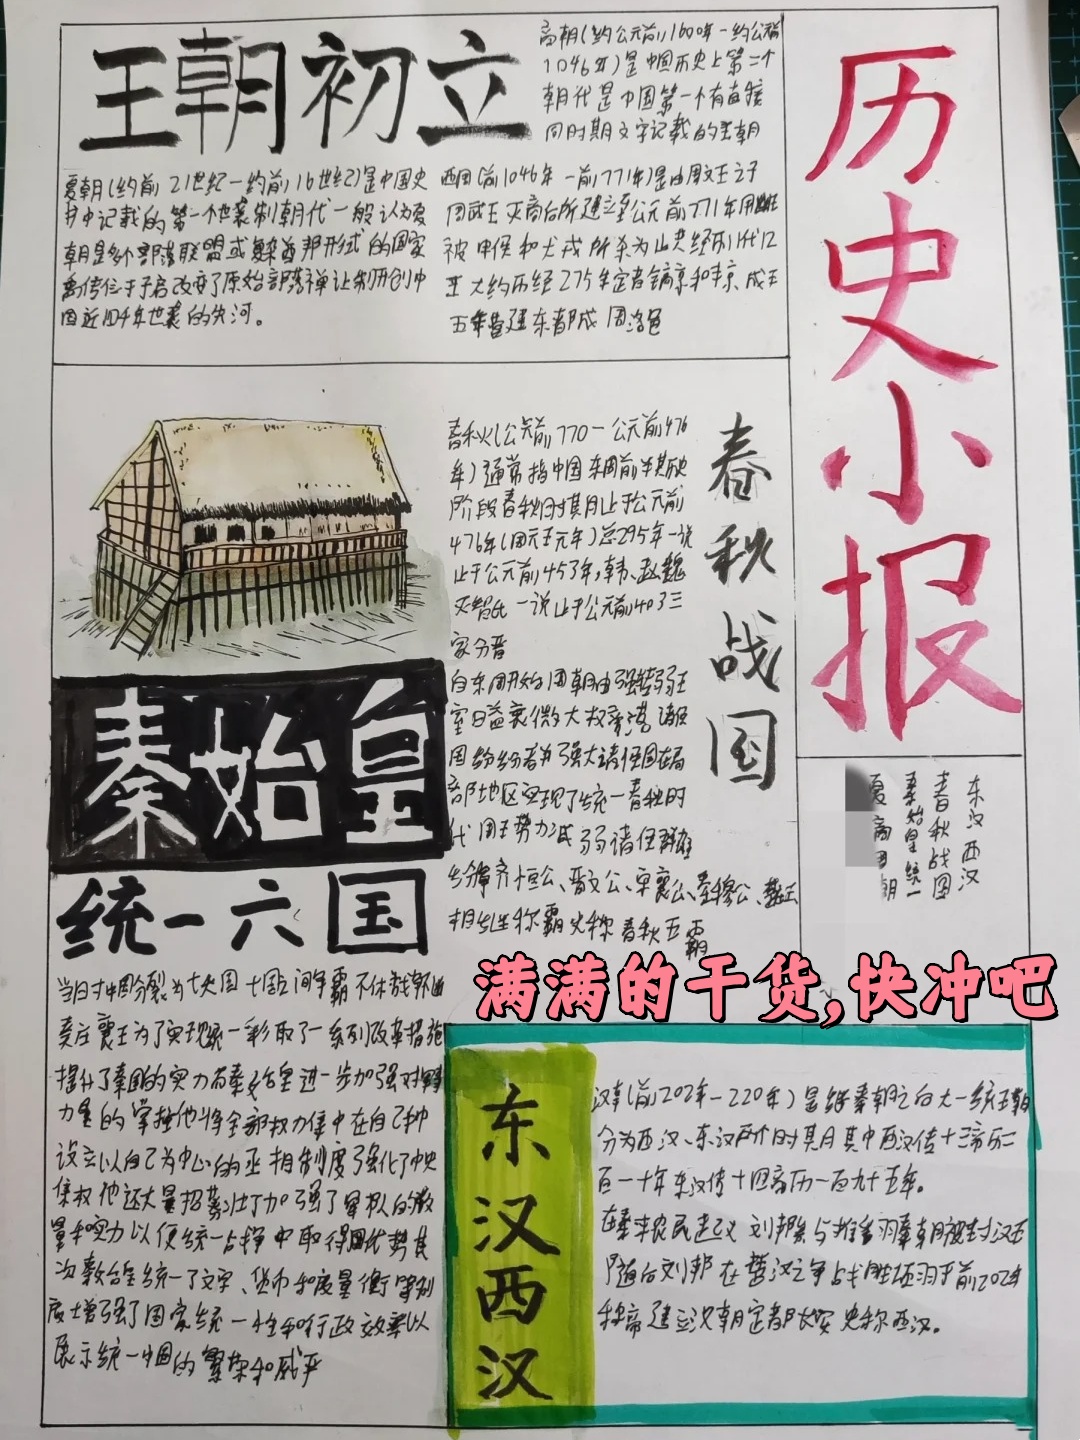 历史小报
王朝初立
商朝(约公元前1600年一约公元前
1046年)是中国历史上第二个
朝代是中国第一个有直接
同时期文字记载的王朝
夏朝(约前21世纪一约前16世纪)是中国史
书中记载的第一个世袭制朝代一般认为夏
朝是多个部落联盟或复杂酋邦形式的国家
禹传位于子启改变了原始部落禅让制开创中
国近四千年世袭的先河。
西周(前1046年一前771年)是由周文王之子
周武王灭商后所建立至公元前771年周幽王
被申侯和犬戎所杀为止共经历11代12
王大约历经275年定都镐京和丰京,成王
五年营建东都成周洛邑
春秋战国
春秋(公元前770一公元前476
年)通常指中国东周前半期历史
阶段春秋时期止于公元前
476年(周元王元年)总295年一说
止于公元前453年,韩、赵魏
灭智氏一说止于公元前403三
家分晋
自东周开始周朝由强转弱王
室日益衰微大权旁落诸侯
国纷纷
强大诸侯国在局
部地区实现了统一春秋时
代周王势力减弱诸侯群雄
纷争齐桓公、晋文公、宋襄公、秦穆公、楚庄王
相继称霸史称春秋五霸
秦始皇
统一六国
当时中国分裂为七大国
国之间争霸不休
秦庄襄王为了实现统一采取了一系列改革措施
提升了秦国的实力而秦始皇进一步加强对
力量的掌握他将全部权力集中在自己
设立以自己为中心的丞相制度强化了中央
集权他还大量招募壮丁加强了军队的数
量和实力以便统一战争中取得
优势其
次秦始皇统一了文字、货币和度量衡等
度增强了国家统一性和行政效率以
展示统一中国的繁荣和威严
东汉西汉
春秋战国
秦始皇统一
夏商周朝
满满的干货,快冲吧
东汉西汉
汉朝(前202年一220年)是继秦朝之后大一统王朝
分为西汉、东汉两个时期其中西汉传十三帝历二
百一十年东汉传十四帝历一百九十五年。
在秦末农民起义刘邦参与推翻秦朝被封汉王
随后刘邦在楚汉之争战胜项羽于前202年
称帝建立汉朝定都长安史称西汉。